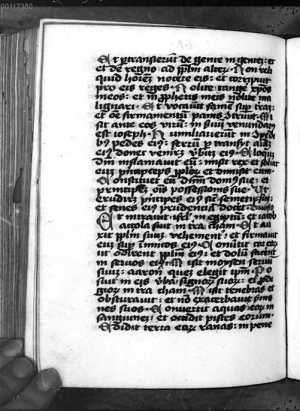 00117380
Et ptransierūt de gente in gentez: et
et de regno ad pplm alterū. Non reli
quid hoiez nocere eis: et corripuit
pro eis reges. Nolite tangē xpos
meos: et in prophetis meis nolite ma
lignari. Et vocauit famem sup terrā:
et oē firmamentū panis ꝯtriuit. Mi
sit ante eos virū: in seruū venundatꝰ
est ioseph. Humiliauerūt in ꝯpedi
bꝰ pedes eiꝰ: ferrū ptransijt aīaz
eiꝰ donec veniret vbū eiꝰ. Eloqiū
dni inflamauit eū: misit rex et soluit
eum princeps pploꝝ et dimisit eum
Constituit eū dnm domꝰ sue: et
principē ois possessionis sue. Ut
erudiret principes eiꝰ sic semetipm:
et senes eiꝰ prudentiā doceret
Et intrauit isrl in egiptū: et iacob
accola fuit in tra cham. Et au
xit pplm suuz vehement: et firmauit
eum sup inimicos eiꝰ. Conūtit cor eoꝝ
ut odirent pplm eiꝰ: et dolū facerent
in seruos eiꝰ. Misit moysen seruū
suuz: aaron quez elegit ipm. Po
suit in eis vba signoꝝ suoꝝ: et pdi
gioꝝ in tra cham. Misit tenebras et
obscurauit: et no exacerbauit sermo
nes suos. Conuertit aquas eoꝝ in
sanguinez: et occidit pisces eorum.
Edidit terra eoꝝ ranas: in pene